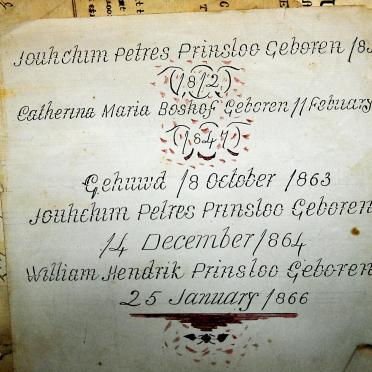 Jouhchim Petres Prinsloo Geboren 18
(1812)
Catherina Maria Boshof Geboren 11 Febuary
(1847)
Gehuwd 18 October 1863
Jouhchim Petres Prinsloo Geboren
14 December 1864
William Hendrik Prinsloo Geboren
25 January 1866